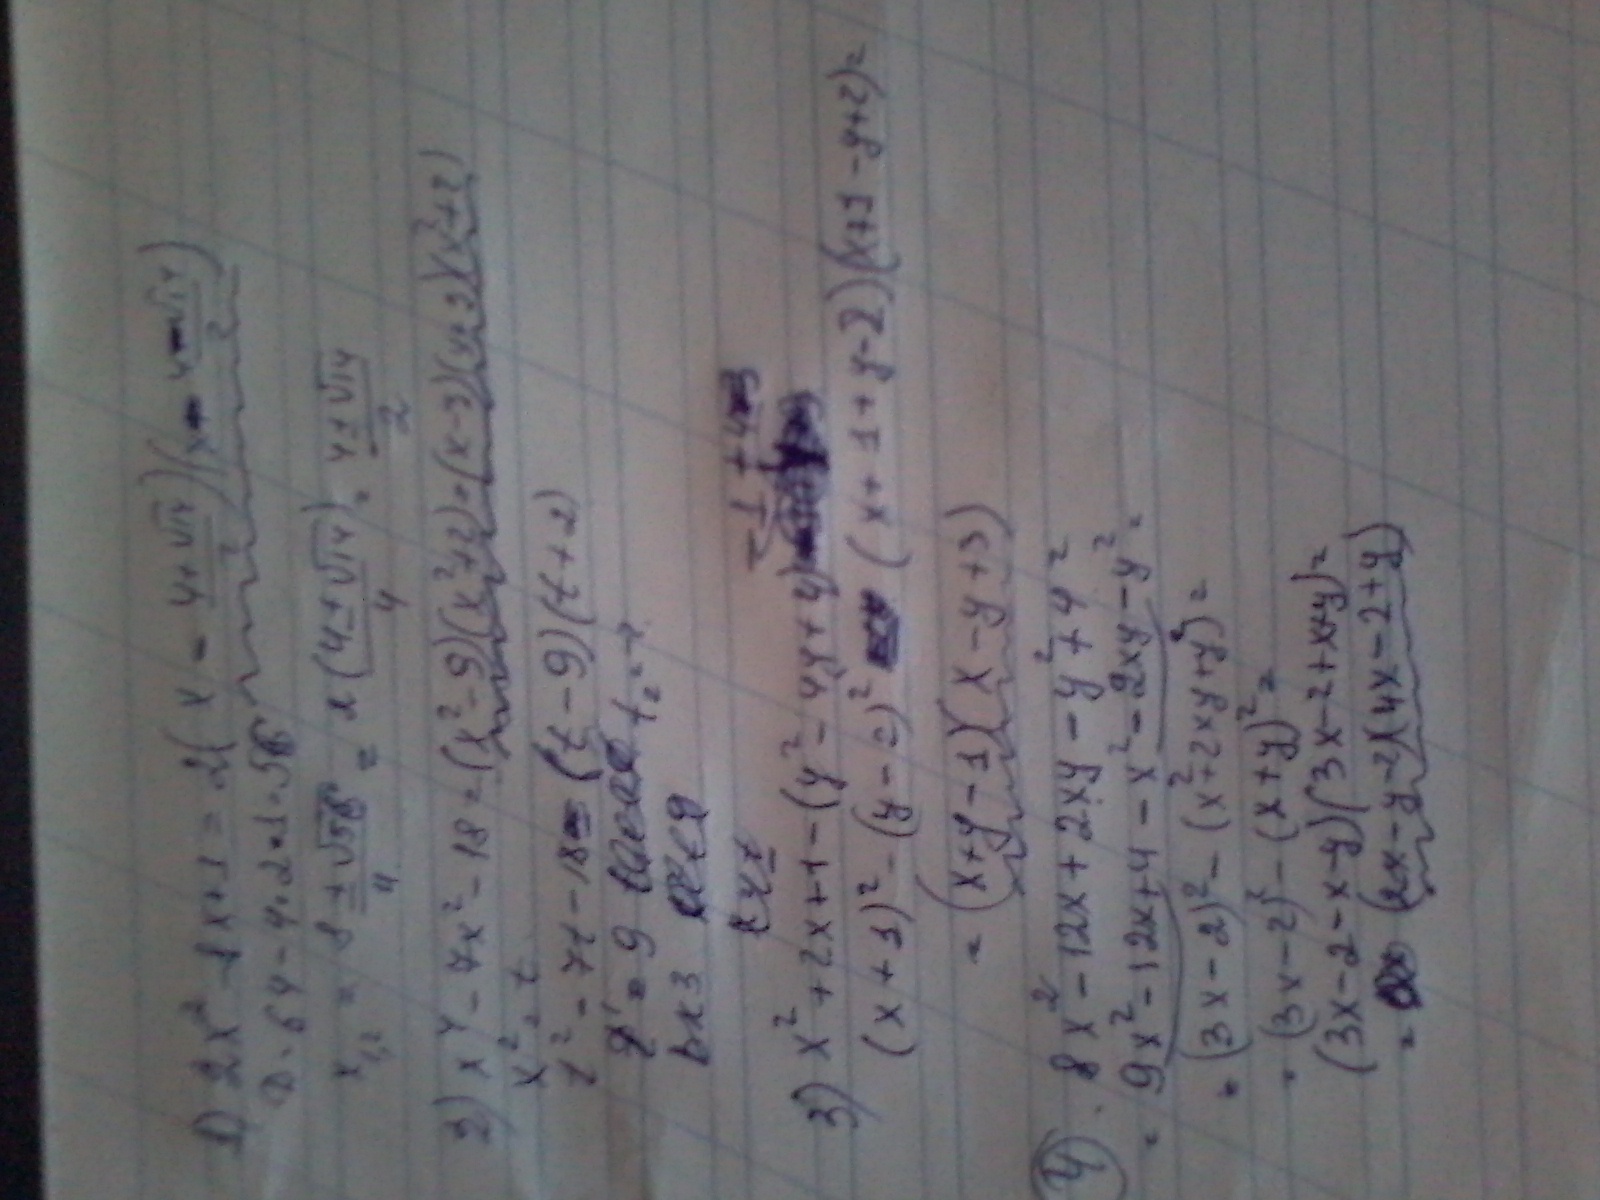 1) 2x² - 8x + 1 = 2(x - (4+√14)/2)(x - (4-√14)/2)
D = 64 - 4·2·1 = 56
x₁,₂ = (8 ± √56)/4 = 2(4 ± √14)/4 = (4 ± √14)/2
2) x⁴ - 7x² - 18 = (x² - 9)(x² + 2) = (x - 3)(x + 3)(x² + 2)
x² = t
t² - 7t - 18 = (t - 9)(t + 2)
= 9 t₂ =
3) x² + 2x + 1 - (y² - 4y + 4)
(x + 1)² - (y - 2)² (x + 1 + y - 2)(x + 1 - y + 2) =
= (x + y - 1)(x - y + 3)
4) 8x² - 12x + 2xy - y² + 4 =
= 9x² - 12x + 4 - x² - 2xy - y² =
= (3x - 2)² - (x² + 2xy + y²) =
= (3x - 2)² - (x + y)² =
(3x - 2 - x - y)(3x - 2 + x + y) =
= (2x - y - 2)(4x - 2 + y)